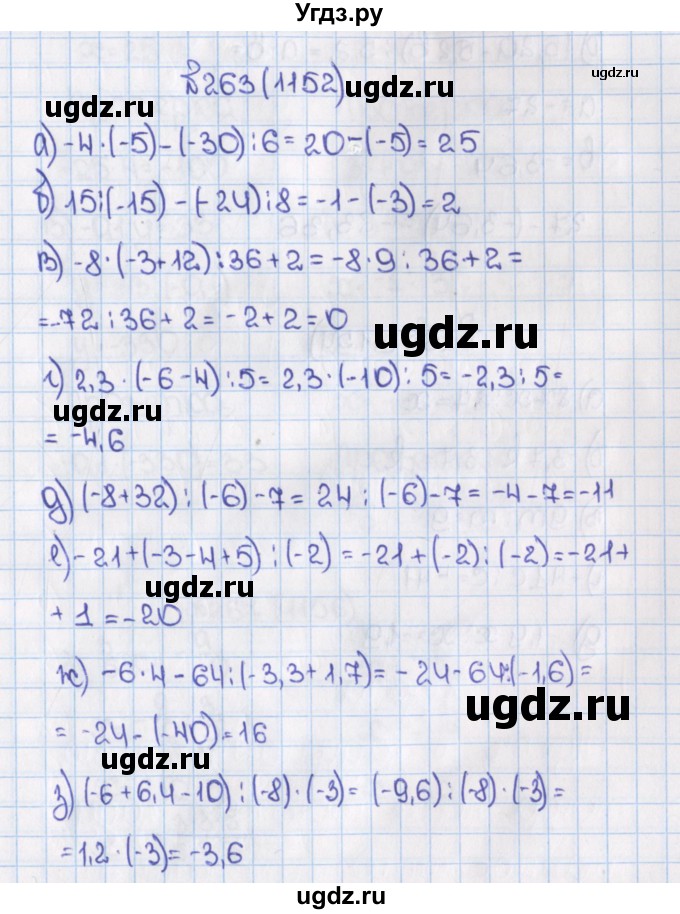 Угдз.ру
№263(1152) ugdz.ru
ugdz.ru
ugdz.ru
а) -4·(-5)-(-30):6=20-(-5)=25
б) 15:(-15)-(-24):8=-1-(-3)=2
в) -8·(-3+12):36+2=-8·9:36+2=
=-72:36+2=-2+2=0
ugdz.ru
г) 2,3·(-6-4):5=2,3·(-10):5=-2,3:5=
ugdz.ru
=-4,6
д) (-8+32):(-6)-7=24:(-6)-7=-4-7=-11
е) -21+(-3-4+5):(-2)=-21+(-2):(-2)=-21+
ugdz.ru
+1=-20
ж) -6·4-64:(-3,3+1,7)=-24-64:(-1,6)=
ugdz.ru
=-24-(-40)=16
ugdz.ru
з) (-6+6,4-10):(-8)·(-3)=(-9,6):(-8)·(-3)=
=1,2·(-3)=-3,6
ugdz.ru
ugdz.ru